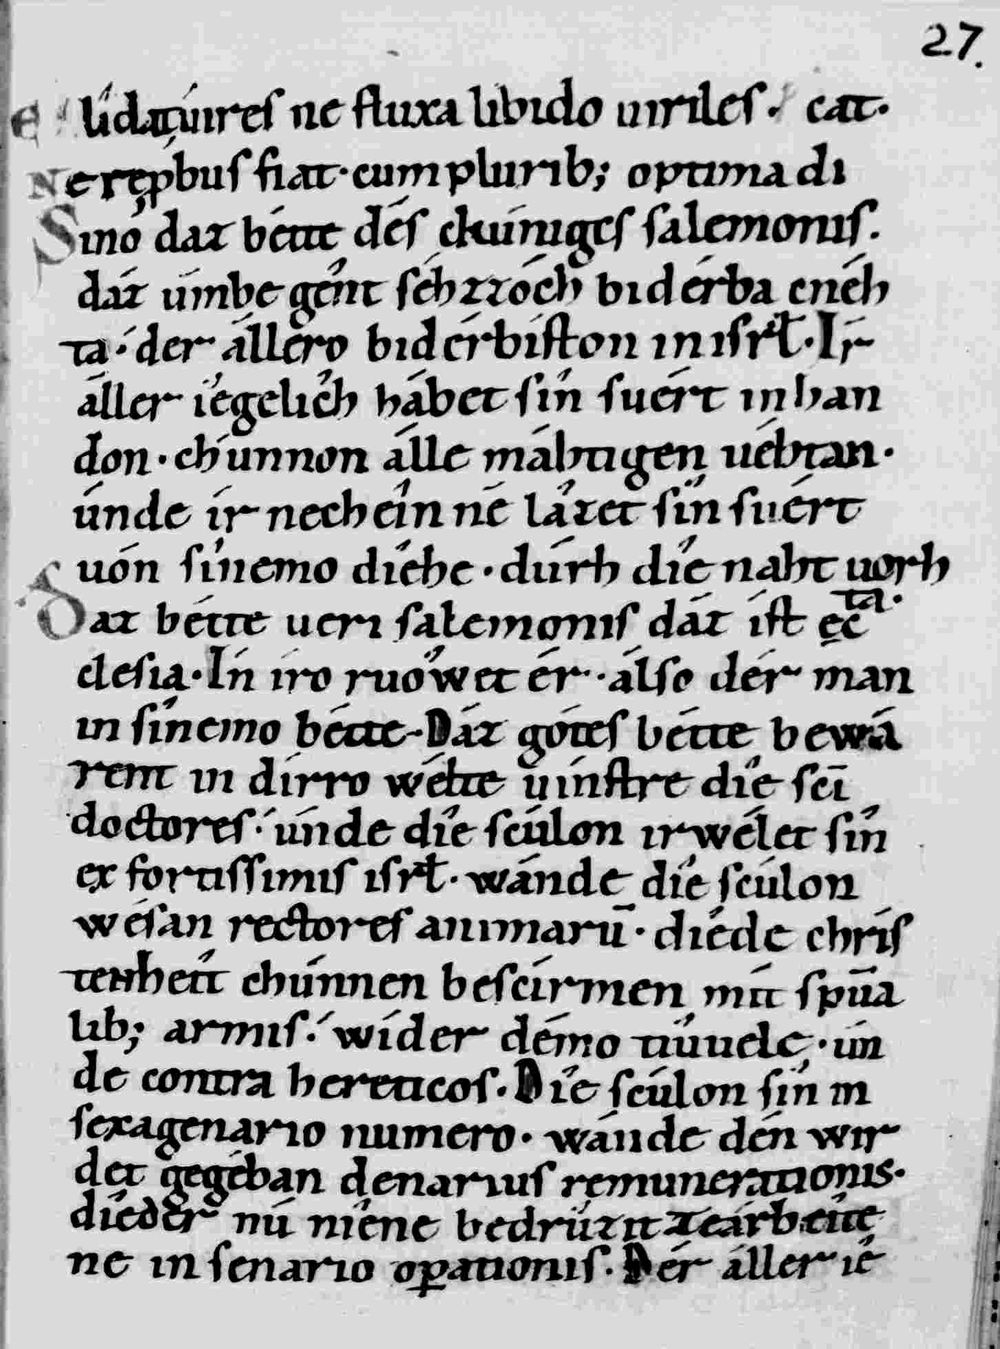 27.
Elidat uires ne fluxa libido uiriles. cat.
Ne rep̄bus fiat. cum plurib; optima di
Sinó daz bétte dés chúniges salemonis.
dáz úmbe gént séhzzóch bidérba cnéh
ta. dér állero bidérbiston in isrł. Ír
áller íegelích hábet sín suért in han
don. chúnnon álle máhtigen uéhtan.
únde ír nechéin né lázet sín suért
uón sínemo díehe. dúrh díe naht uorh
ta.
Daz bétte ueri salemonis dáz íst ęc
clesia. Ín íro rúowet ér. álso dér man
in sínemo bétte. Dáz gótes bétte bewá
rent in dírro wélte uínstre díe sc̄i
doctores. únde díe scúlon irwélet sín
ex fortissimis isrł. wánde díe scúlon
wésan rectores animarū. díede chrís
tenheit chúnnen bescírmen mít spūa
lib; armis. wíder démo tíuuele. ún
de contra hereticos. Díe scúlon sín in
sexagenario numero. wánde dén wír
det gegéban denarius remunerationis.
díedér nú níene bedrúzit zeárbéite
ne in senario op̄ationis. Dér áller íe